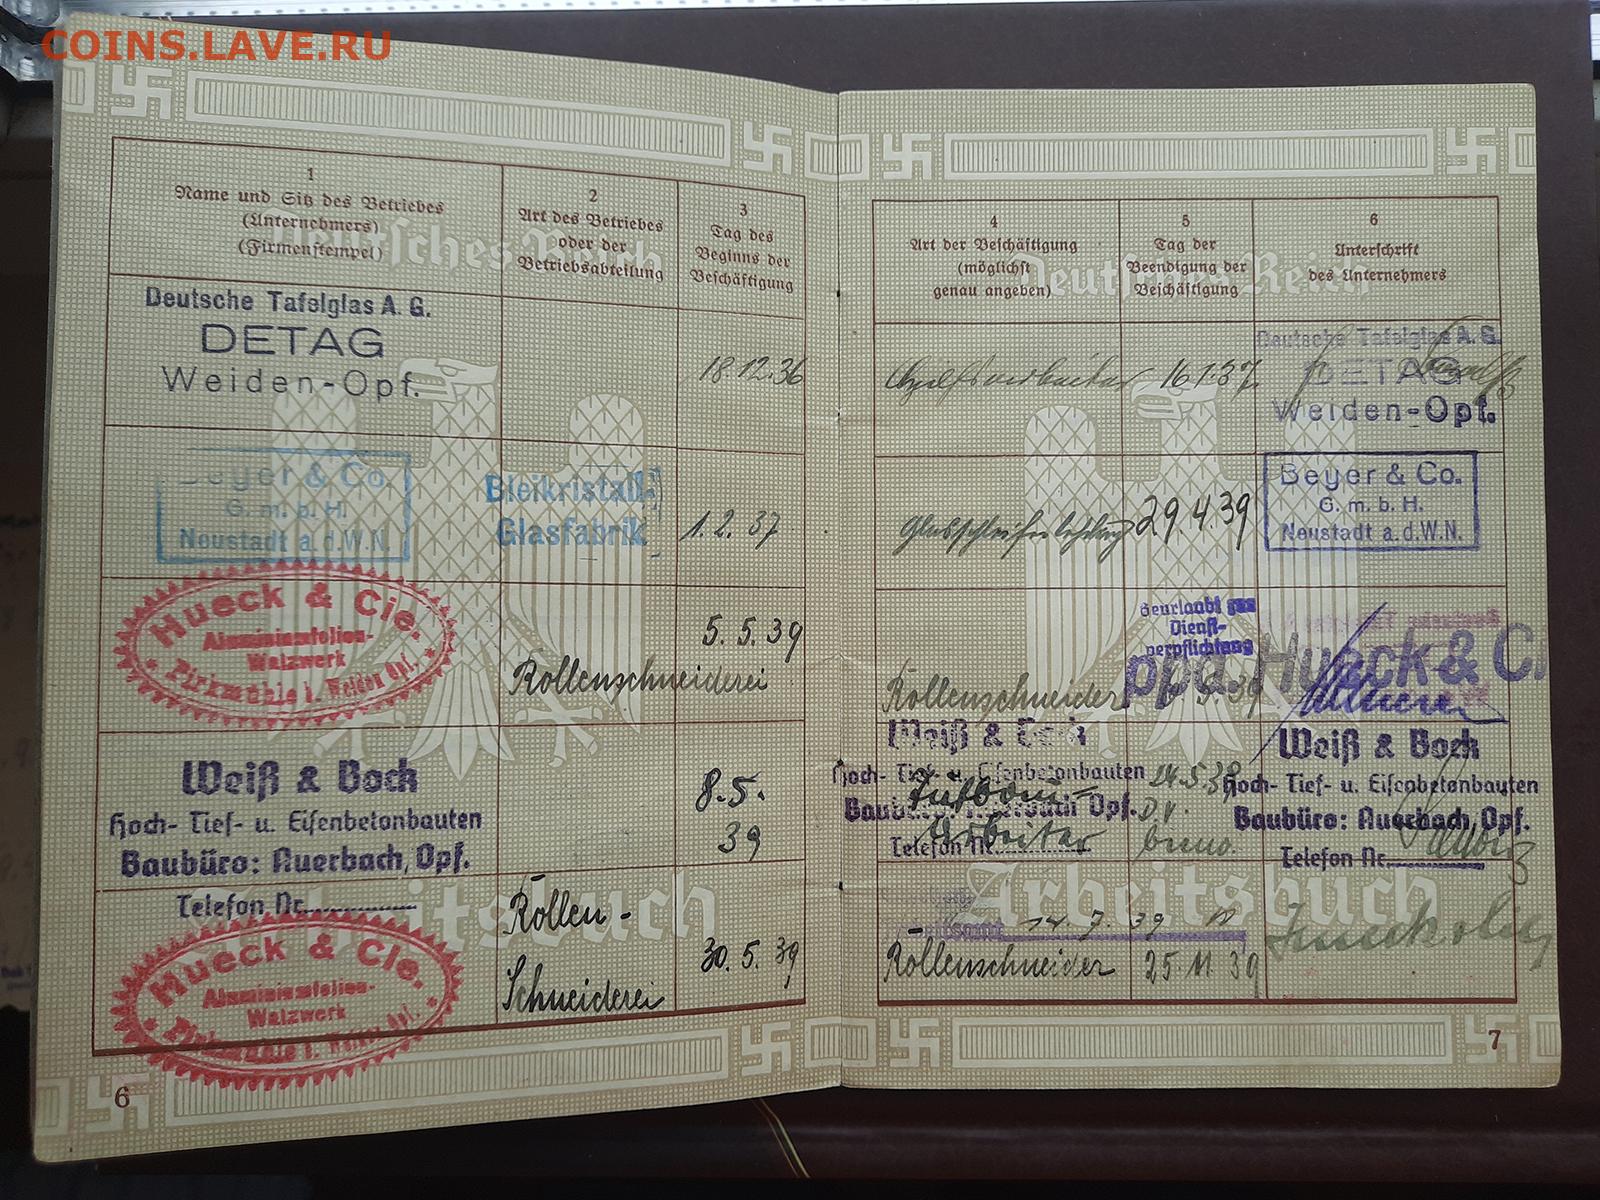 COINS.LAVE.RU
1
Name und Sitz des Betriebes
(Unternehmers)
(Firmenstempel)
2
Art des Betriebes
oder der
Betriebsabteilung
3
Tag des
Beginns der
Beschäftigung
Deutsches Reich
Deutsche Tafelglas A. G.
DETAG
Weiden-Opf.
18.12.36
Beyer & Co.
G. m. b. H.
Neustadt a. d. W. N.
Bleikristall-
Glasfabrik
1. 2. 37
Hueck & Cie.
Aluminiumfolien-
Walzwerk
Pirkmühle i. Weiden Opf.
Rollenschneiderei
5. 5. 39
Weiß & Boch
Hoch- Tief- u. Eisenbetonbauten
Baubüro: Auerbach, Opf.
Telefon Nr.
8. 5.
39
Arbeitsbuch
Hueck & Cie.
Aluminiumfolien-
Walzwerk
Pirkmühle i. Weiden Opf.
Rollen-
Schneiderei
30. 5. 39
6
4
Art der Beschäftigung
(möglichst
genau angeben)
5
Tag der
Beendigung der
Beschäftigung
6
Unterschrift
des Unternehmers
Deutsches Reich
Hilfsarbeiter
16.1.37
Deutsche Tafelglas A. G.
DETAG
Weiden-Opf.
Glasschleiferlehrling
29. 4. 39
Beyer & Co.
G. m. b. H.
Neustadt a. d. W. N.
Rollenschneider
Beurlaubt zur
Dienst-
verpflichtung
5. 39
ppa. Hueck & C.
Weiß & Boch
Hoch- Tief- u. Eisenbetonbauten
Baubüro: Auerbach Opf.
Telefon Nr.
Tiefbau-
Arbeiter
24.5.39
Weiß & Boch
Hoch- Tief- u. Eisenbetonbauten
Baubüro: Auerbach, Opf.
Telefon Nr.
Arbeitsbuch
14. 7. 39
Rollenschneider
25. 11. 39
7